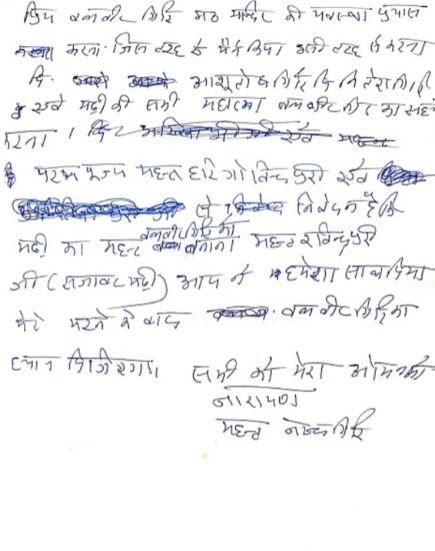 प्रिय बलवीर गिरि मठ मंदिर की व्यवस्था प्रयास
करना. जिस तरह से मैंने किया उसी तरह से करना
आशुतोष गिरि
एवं मढ़ी की सभी महात्मा बलवीर गिरि का सहयोग
करना।
परम पूज्य महन्त हरि गोविन्द पुरी एवं
से निवेदन है कि
मढ़ी का महन्त बलवीर गिरि को बनाना। महन्त रविन्द्र पुरी
जी (सजावट मढ़ी) आप ने हमेशा साथ दिया
मेरे मरने के बाद बलवीर गिरि का
ध्यान दिजिएगा। सभी को मेरा ओम नमो
नारायण
महन्त नरेन्द्र गिरि